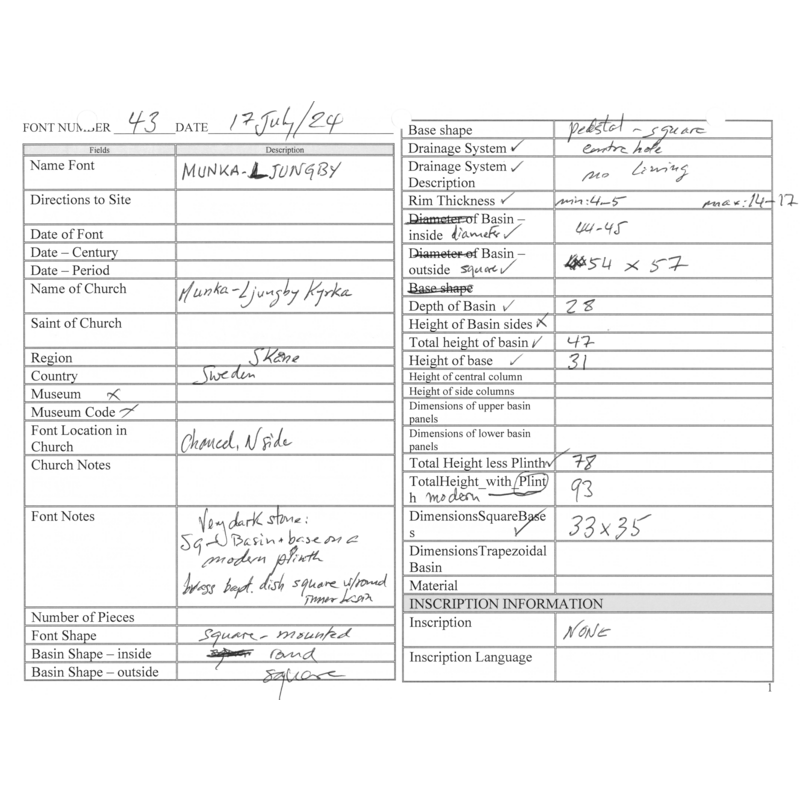 FONT NUMBER 43 DATE 17 July/24
Fields Description
Name Font MUNKA-LJUNGBY
Directions to Site
Date of Font
Date – Century
Date – Period
Name of Church Munka-Ljungby Kyrka
Saint of Church
Region Skåne
Country Sweden
Museum ×
Museum Code ×
Font Location in
Church Chancel, N side
Church Notes
Font Notes Very dark stone:
Sq Basin + base on a
modern plinth
brass bapt. dish square w/round
inner basin
Number of Pieces
Font Shape square – mounted
Basin Shape – inside round
Basin Shape – outside square
Base shape pedestal – square
Drainage System ✓ centre hole
Drainage System ✓
Description no lining
Rim Thickness ✓ min: 4-5 max: 14-17
Diameter of Basin –
inside diameter ✓ 44-45
Diameter of Basin –
outside square ✓ 54 x 57
Base shape
Depth of Basin ✓ 28
Height of Basin sides ×
Total height of basin ✓ 47
Height of base ✓ 31
Height of central column
Height of side columns
Dimensions of upper basin
panels
Dimensions of lower basin
panels
Total Height less Plinth ✓ 78
TotalHeight_with_Plint
h modern 93
DimensionsSquareBase
s ✓ 33x35
DimensionsTrapezoidal
Basin
Material
INSCRIPTION INFORMATION
Inscription NONE
Inscription Language
1